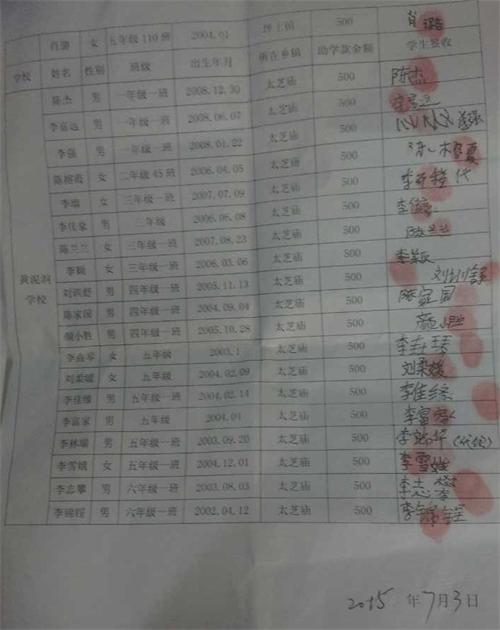 肖璐 女 五年级110班 2004.01 坪上镇 500 肖璐
学校 姓名 性别 班级 出生年月 所在乡镇 助学款金额 学生签收
陈杰 男 一年级一班 2008.12.30 太芝庙 500 陈杰
李富远 男 一年级一班 2008.06.07 太芝庙 500 李富远
李强 男 一年级一班 2008.01.22 太芝庙 500
陈榕霞 女 二年级45班 2006.04.05 太芝庙 500
李瑞 女 三年级一班 2007.07.09 太芝庙 500 代
李佳豪 男 三年级 2006.06.08 太芝庙 500
陈兰兰 女 三年级一班 2007.08.23 太芝庙 500 陈兰兰
李颖 女 三年级一班 2006.03.06 太芝庙 500 李颖
黄泥洞学校
男 四年级一班 2005.11.13 太芝庙 500
陈家国 男 四年级一班 2004.09.04 太芝庙 500 陈家国
颜小胜 男 四年级一班 2005.10.28 太芝庙 500 颜小胜
女 五年级 2003.1 太芝庙 500
刘柔媛 女 五年级 2004.02.09 太芝庙 500 刘柔媛
男 五年级一班 2004.02.14 太芝庙 500
李富家 男 五年级 2004.01 太芝庙 500
李林瑞 男 五年级一班 2003.09.20 太芝庙 500
李雪娥 女 五年级一班 2004.12.01 太芝庙 500 李雪娥
李志攀 男 六年级一班 2003.08.03 太芝庙 500 李志攀
男 六年级一班 2002.04.12 太芝庙 500
2015年7月3日